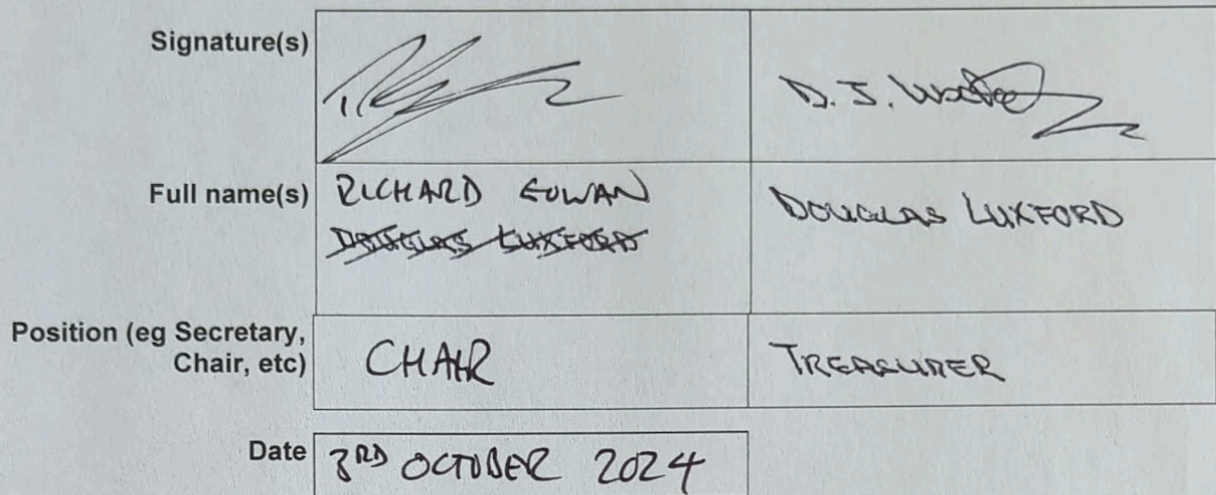 Signature(s)
D. J.
Full name(s) RICHARD DOUGLAS LUXFORD
DOUGLAS LUXFORD
Position (eg Secretary,
Chair, etc) CHAIR TREASURER
Date 3RD OCTOBER 2024